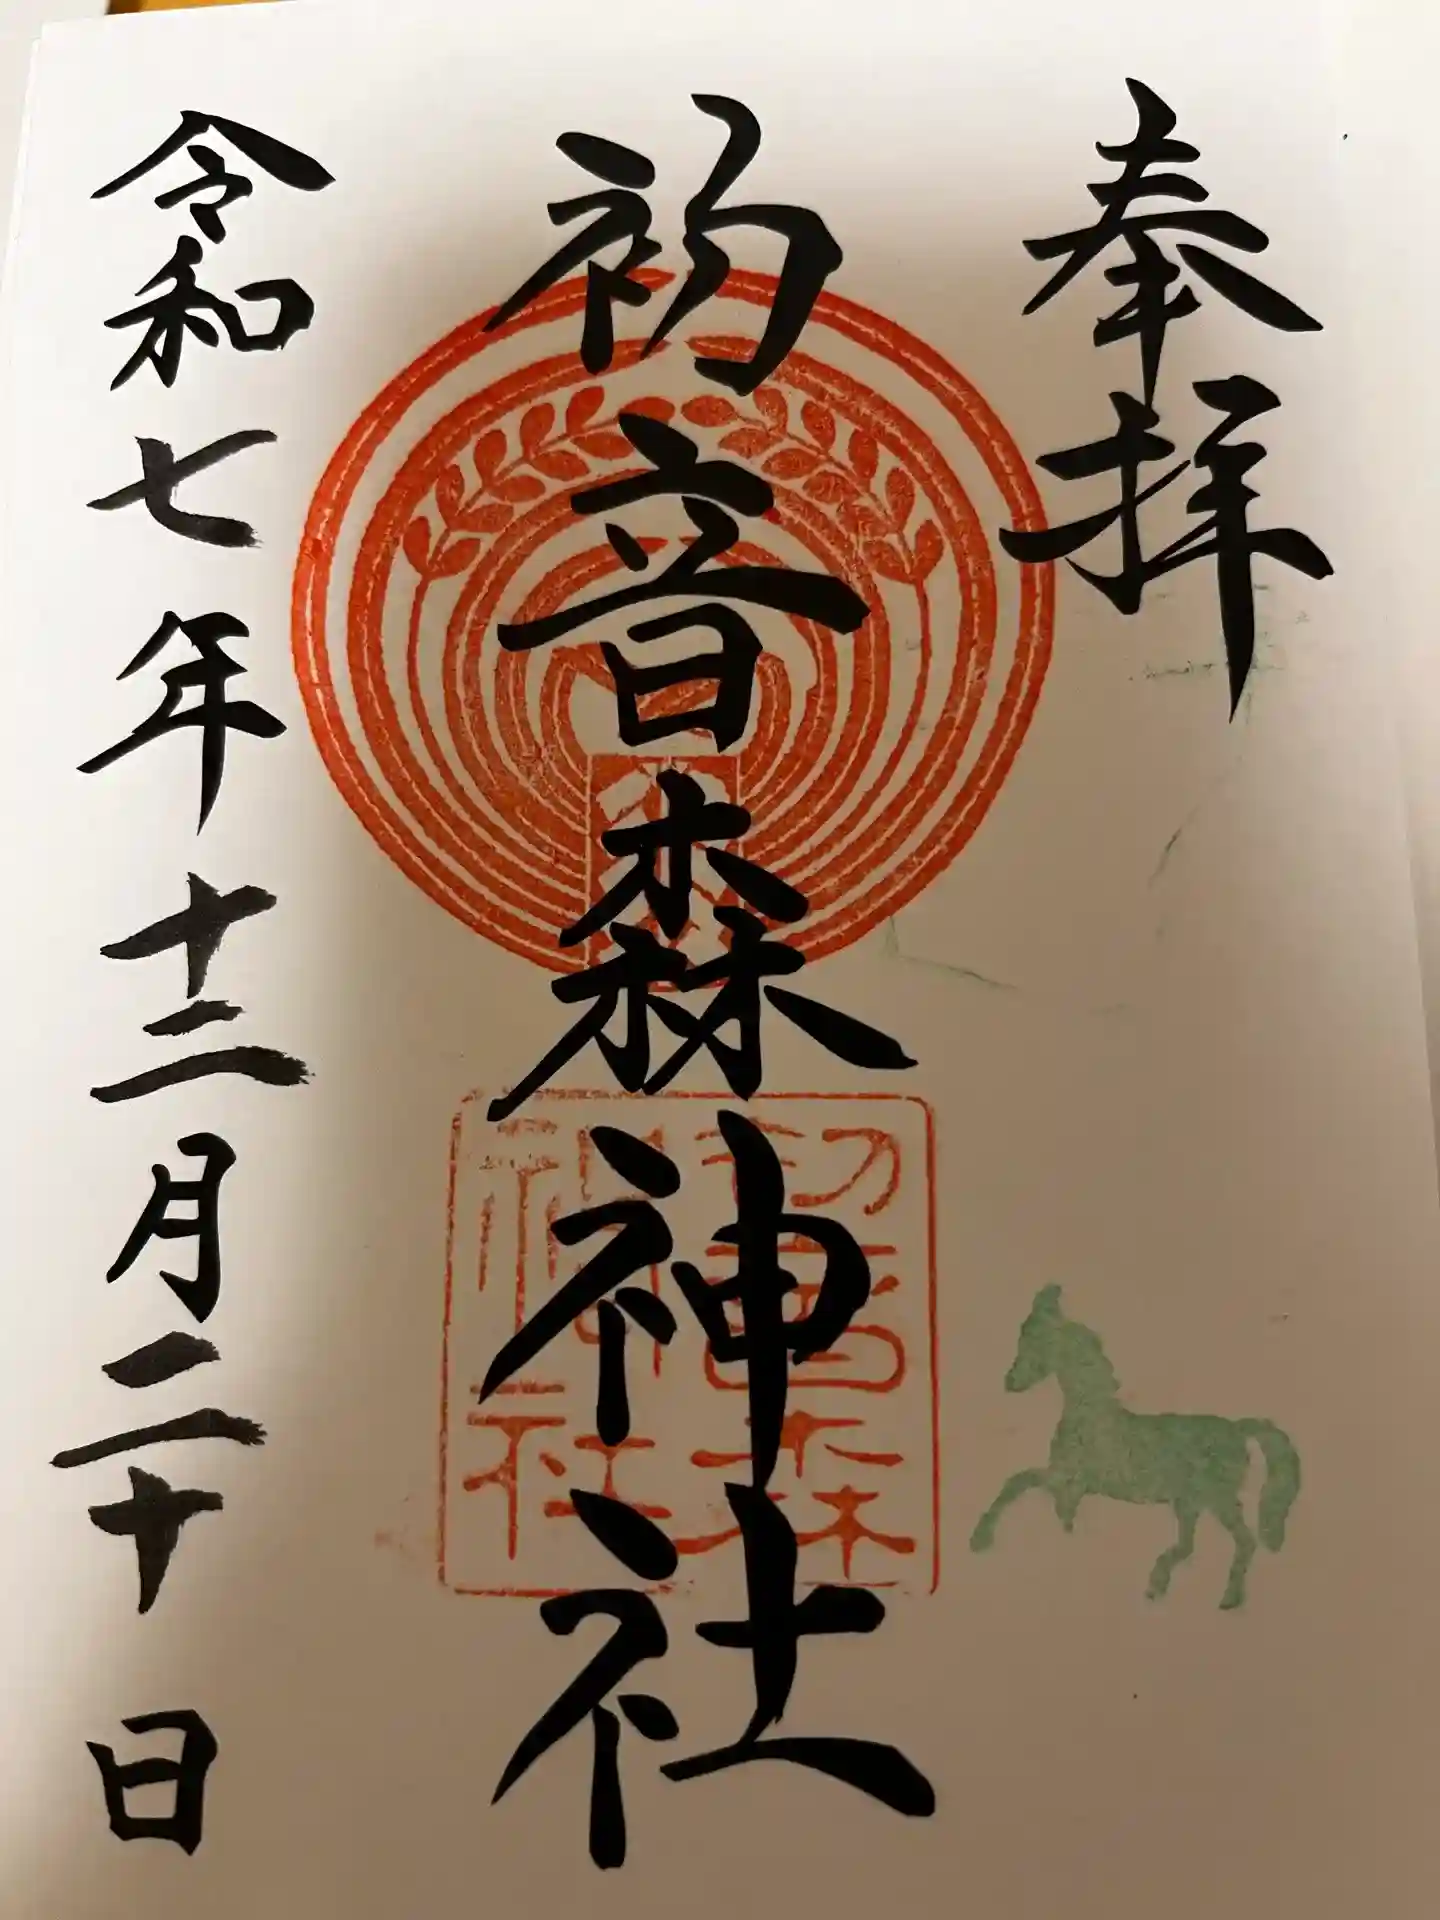 奉拝
初音森神社
初音森
神社
令和七年十二月二十日